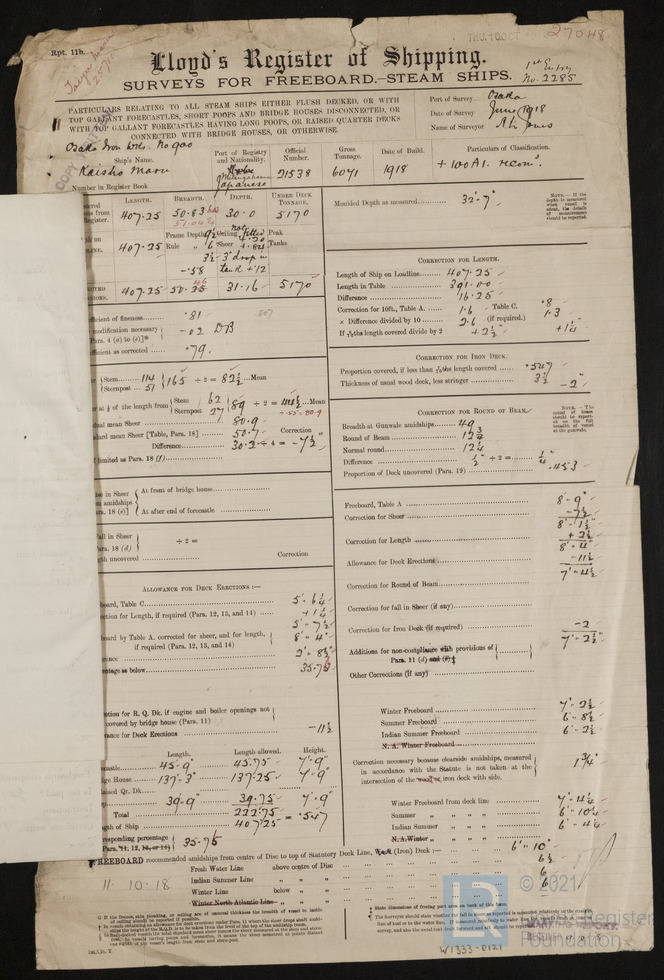 Rpt. 11b.
27048.
Lloyd's Register of Shipping.
SURVEYS FOR FREEBOARD.—STEAM SHIPS.
1st Entry
No. 2285
PARTICULARS RELATING TO ALL STEAM SHIPS EITHER FLUSH DECKED, OR WITH
TOP GALLANT FORECASTLES, SHORT POOPS AND BRIDGE HOUSES DISCONNECTED, OR
WITH TOP GALLANT FORECASTLES HAVING LONG POOPS, OR RAISED QUARTER DECKS
CONNECTED WITH BRIDGE HOUSES, OR OTHERWISE.
Port of Survey Osaka
Date of Survey June 1918
Name of Surveyor A. L. Jones
Osaka Iron Wks. No 900
Ship's Name. Port of Registry and Nationality. Official Number. Gross Tonnage. Date of Build. Particulars of Classification.
Kaisho Maru Japanese 21538 6071 1918 +100A1. recomd.
Number in Register Book
LENGTH. BREADTH. DEPTH. UNDER DECK TONNAGE.
407.25 50.83 30.0 5170
Frame Depth 9½ Ceiling not fitted Peak
407.25 Rule " 6 Sheer + Tanks
3½ 3" drop in
-.58 tank +.12
407.25 31.16 5170
Moulded Depth as measured 32'-7"
NOTE.—If the depth is measured when vessel is afloat, the details of measurement should be reported.
CORRECTION FOR LENGTH.
Length of Ship on Loadline 407.25
Length in Table 391.00
Difference 16.25
Correction for 10ft., Table A. 1.6 Table C. .8
× Difference divided by 10 2.6 (if required.) 1.3
If 6/10ths length covered divide by 2 +2½" +1¼
coefficient of fineness .81
modification necessary -.02 DB
Para. 4 (a) to (e)]*
coefficient as corrected .79
CORRECTION FOR IRON DECK.
Proportion covered, if less than 7/10ths length covered .547
Thickness of usual wood deck, less stringer 3½ -2"
Stem 114
Sternpost 51 165 ÷ 2 = 82½ Mean
at ⅛ of the length from Stem 62
Sternpost 27 89 ÷ 2 = 44½ Mean
mean Sheer 80.9
mean Sheer [Table, Para. 18] 50.7 Correction
Difference 30.2 ÷ 4 = -7½
limited as Para. 18 (f)
CORRECTION FOR ROUND OF BEAM.
Breadth at Gunwale amidships 49
Round of Beam 12¾
Normal round 12¼
Difference ½ ÷ 2 = ¼
Proportion of Deck uncovered (Para. 19) .453
NOTE.—The round of beam should be reported on the full breadth of vessel at the gunwale.
in Sheer
amidships At front of bridge house
18 (e)] At after end of forecastle
fall in Sheer
Para. 18 (d) ÷ 2 =
length uncovered Correction
Freeboard, Table A 8'-9"
Correction for Sheer -7½
8'-1½"
Correction for Length +2½
8'-4"
Allowance for Deck Erections -11½
7'-4½
Correction for Round of Beam
Correction for fall in Sheer (if any)
Correction for Iron Deck (if required) -2
7'-2½"
Additions for non-compliance with provisions of
Para. 11 (d) and (e)
Other Corrections (if any)
ALLOWANCE FOR DECK ERECTIONS :—
Freeboard, Table C. 5'-6¼
Correction for Length, if required (Para. 12, 13, and 14) +1¼
5'-7½
Freeboard by Table A. corrected for sheer, and for length,
if required (Para. 12, 13, and 14) 8'-4"
Difference 2'-8½
Percentage as below 35.75
Correction for R. Q. Dk. if engine and boiler openings not
covered by bridge house (Para. 11)
Allowance for Deck Erections -11½
Winter Freeboard 7'-2½
Summer Freeboard 6'-8½
Indian Summer Freeboard 6'-2½
N. A. Winter Freeboard
Correction necessary because clearside amidships, measured
in accordance with the Statute is not taken at the
intersection of the wood or iron deck with side. 1¾"
Length. Length allowed. Height.
45'-9" 45.75 7'-9"
House 137'-3" 137.25 7'-9"
Raised Qr. Dk.
39'-9" 39.75 7'-9"
Total 222.75
Length of Ship 407.25 = .547
Corresponding percentage
Para. 11, 12, 13, or 14) 35.75
Winter Freeboard from deck line 7'-4¼
Summer " " " " 6'-10¼
Indian Summer " " " 6'-4¼
N. A. Winter " " "
FREEBOARD recommended amidships from centre of Disc to top of Statutory Deck Line, Wood (Iron) Deck :— 6'-10"
Fresh Water Line above centre of Disc 6½
Indian Summer Line " " 6
Winter Line below " 6
Winter North Atlantic Line " "
11.10.18
© 2021
LR
Lloyd's Register
Foundation
W1333-0121